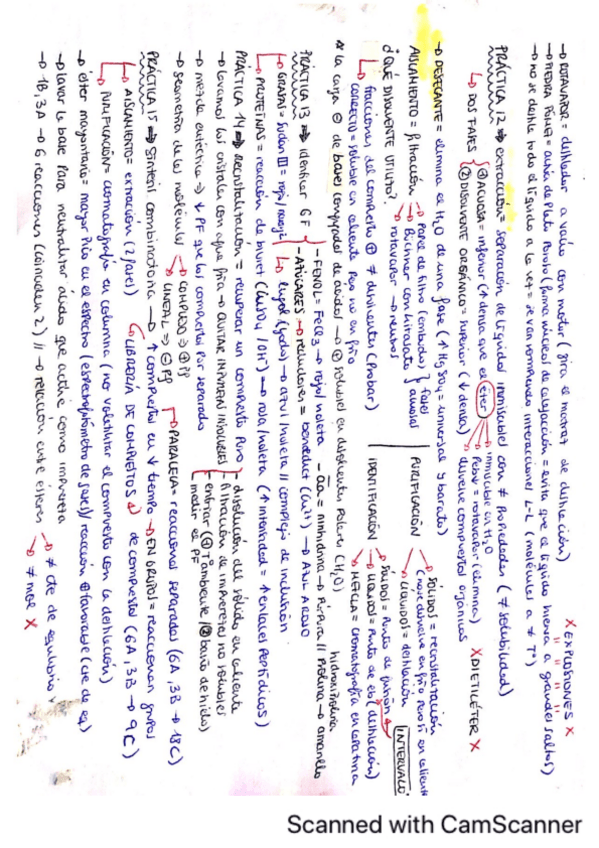 → ROTAVAPOR = destilador a vacío con motor (gira el matraz de destilación) X EXPLOSIONES X
→ PIEDRA PÓMEZ = avisa de Plato Poroso (forma núcleos de ebullición = evita que el líquido hierva a grandes saltos)
→ No se destila todo el líquido a la vez = se van rompiendo interacciones L-L (moléculas a ≠ Tª)
PRÁCTICA 12 ⇒ extracción: separación de líquidos inmiscibles con ≠ Propiedades (≠ solubilidad)
↳ DOS FASES { ① ACUOSA = inferior (↑ densa que el éter) inmiscible en H2O
② DISOLVENTE ORGÁNICO = superior (↓ densa) Pebar = rotavapor (elimina) X DIETILÉTER X
disuelve compuestos orgánicos
→ DESECANTE = elimina el H2O de una fase (↑ MgSO4 = universal y barato)
AISLAMIENTO = filtración Papel de filtro (embudo) } fase
Büchner con kitasato } acuosa
rotavapor → neutros
PURIFICACIÓN SÓLIDOS = recristalización
(no se disuelve en frío pero sí en caliente)
LÍQUIDOS = destilación
¿QUÉ DISOLVENTE UTILIZO?
↳ fracciones del compuesto ⊕ ≠ disolventes (Probar)
CORRECTO = soluble en caliente pero no en frío
IDENTIFICACIÓN SÓLIDO = Punto de fusión INTERVALO
LÍQUIDO = Punto de eb (destilación)
MEZCLA = cromatografía en capa fina
* la carga ⊖ de bases conjugadas de ácidos → ⊕ solubles en disolventes Polares (H2O)
PRÁCTICA 13 ⇒ identificar GF - FENOL = FeCl3 → rojo/violeta - aa = ninhidrina → Púrpura // Prolina → amarillo
hidroxiprolina
- AZÚCARES → reductores = benedict (Cu2+) → AZUL A ROJO
↳ GRASAS = Sudán III = rojo/naranja ↳ lugol (yodo) → azul/violeta // complejo de inclusión
↳ PROTEÍNAS = reacción de biuret (CuSO4 / OH-) → rosa/violeta (↑ intensidad = ↑ enlaces Peptídicos)
PRÁCTICA 14 ⇒ Recristalización = recuperar un compuesto Puro - disolución del sólido en caliente
→ lavamos los cristales con agua fría → QUITAR IMPUREZAS INSOLUBLES - filtración de impurezas no solubles
→ mezcla eutéctica ⇒ ↓ PF que los compuestos por separado - enfriar (① Tª ambiente / ② baño de hielo)
- medir el PF
→ geometría de las moléculas COMPLEJO ⇒ ⊕ PF
LINEAL ⇒ ⊖ PF
PRÁCTICA 15 ⇒ Síntesis combinatoria → ↑ compuestos en ↓ tiempo PARALELA = reacciones separadas (6A, 3B → 18C)
EN GRUPOS = reaccionan grupos
de compuestos (6A, 3B → 9C)
↳ AISLAMIENTO = extracción (2 fases) LIBRERÍA DE COMPUESTOS
↳ PURIFICACIÓN = cromatografía en columna (no volatilizar el compuesto con la destilación)
→ éster mayoritario = mayor Pico en el espectro (espectrofotómetro de gases) / reacción ⊕ favorable (cte de eq)
→ lavar la base para neutralizar ácido que actúe como impureza
→ 1B, 3A → 6 reacciones (coinciden 2) // → relación entre ésteres ≠ cte de equilibrio ✓
≠ mol X
Scanned with CamScanner